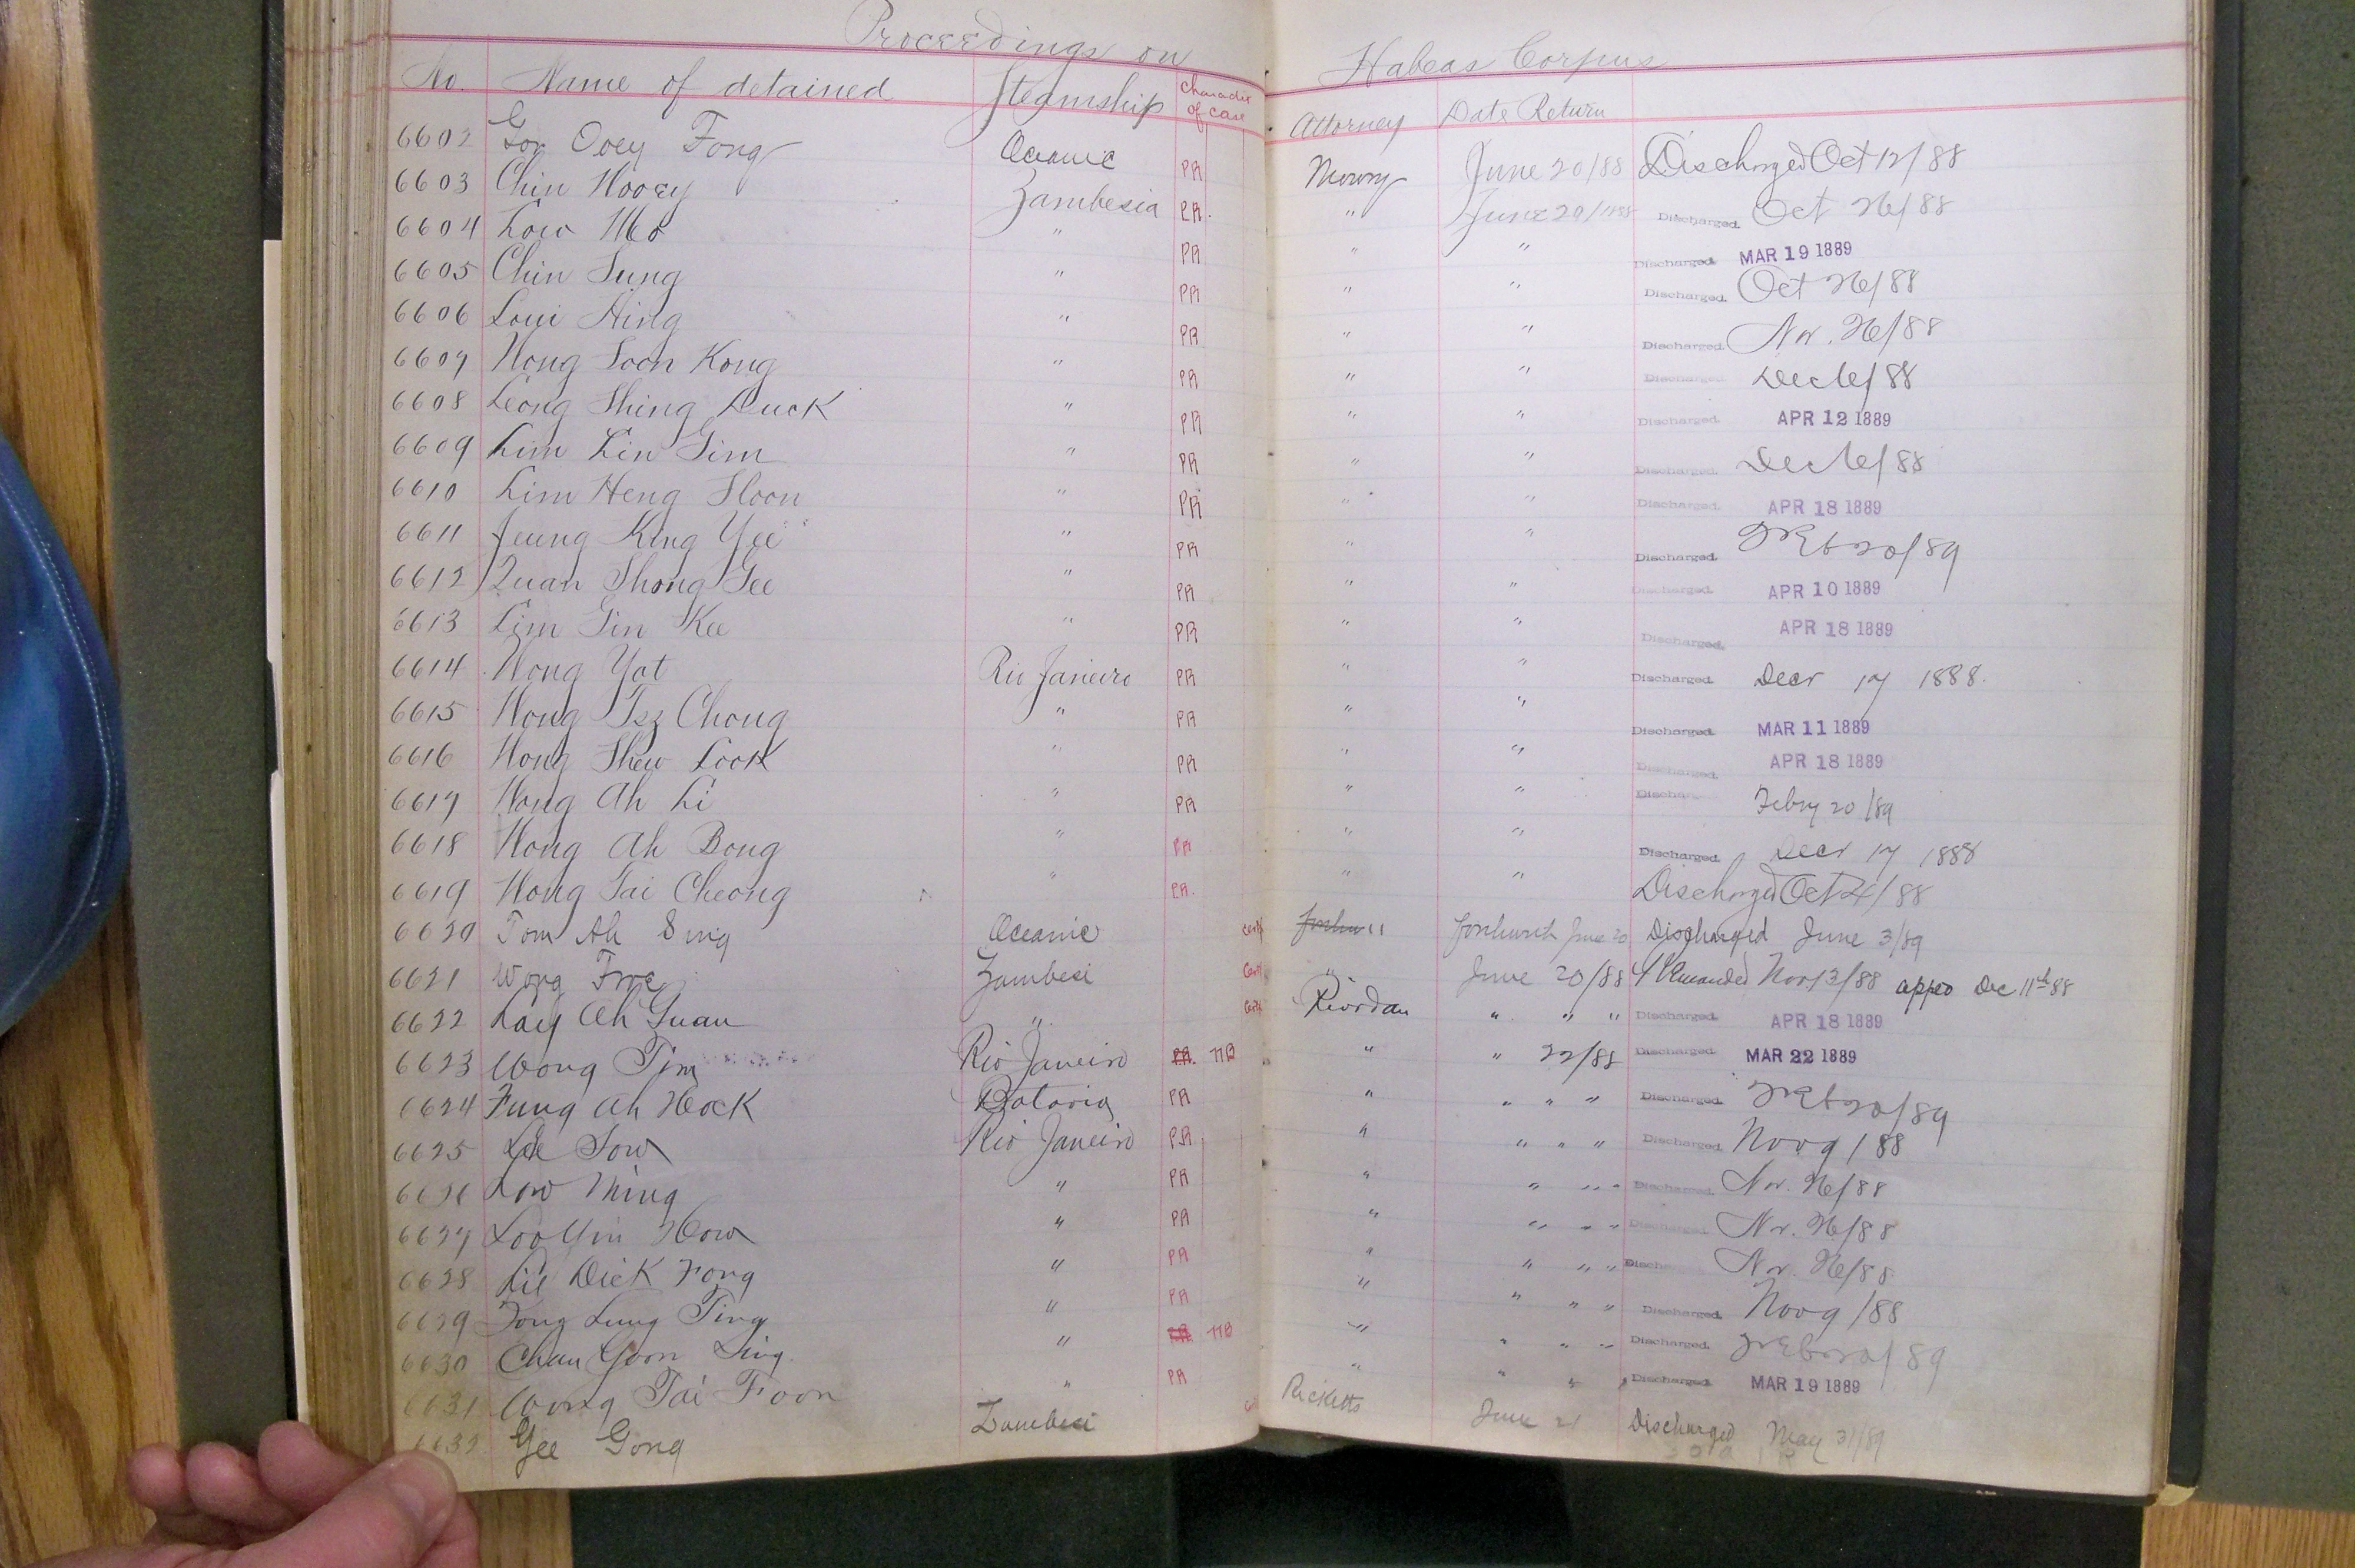 Proceedings on Habeas Corpus
No. Name of detained Steamship Character of case Attorney Date Return
6602 Gon Ooey Fong Oceanic PR Mowry June 20/88 Discharged Oct 12/88
6603 Chin Hooey Zambesia PR. " June 20/1888 Discharged. Oct 26/88
6604 Low Mo " PR " " Discharged. MAR 19 1889
6605 Chin Sung " PR " " Discharged. Oct 26/88
6606 Loui Hing " PR " " Discharged. Nov. 26/88
6607 Wong Soon Kong " PR " " Discharged. Dec 16/88
6608 Leong Shing Duck " PR " " Discharged. APR 12 1889
6609 Lim Lin Sim " PR " " Discharged. Dec 16/88
6610 Lim Heng Sloon " PR " " Discharged. APR 18 1889
6611 Jeung King Yee " PR " " Discharged. Feb 20/89
6612 Quan Shong Gee " PR " " Discharged. APR 10 1889
6613 Lim Gin Kee " PR " " Discharged. APR 18 1889
6614 Wong Yat Rio Janeiro PR " " Discharged. Decr 17 1888.
6615 Wong Tsz Chong " PR " " Discharged. MAR 11 1889
6616 Wong Shew Look " PR " " Discharged. APR 18 1889
6617 Wong Ah Li " PR " " Discharged Febry 20/89
6618 Wong Ah Bong " PR " " Discharged. Decr 17 1888
6619 Wong Tai Cheong " PR. " " Discharged Oct 24/88
6620 Tom Ah Sing Oceanic Certf " forthwith June 20 Discharged June 3/89
6621 Wong Free Zambesi Certf " June 20/88 Remanded Nov 13/88 appeo Dec 11th 88
6622 Lay Ah Guan " Certf Riordan " " " Discharged. APR 18 1889
6623 Wong Tim Rio Janeiro PR. 77B " " 22/88 Discharged. MAR 22 1889
6624 Fung Ah Hock Batavia PR " " " " Discharged. Feb 20/89
6625 Lee Sow Rio Janeiro PR " " " " Discharged. Nov 9/88
6626 Low Ming " PR " " " " Discharged. Nov. 26/88
6627 Loo Yin How " PR " " " " Discharged. Nov. 26/88
6628 Lee Dick Fong " PR " " " " Discharged Nov. 26/88
6629 Fong Lung Ting " PR " " " " Discharged. Nov 9/88
6630 Chan Yoon Ling " PR 77B " " " " Discharged. Feb 20/89
6631 Wong Tai Foon " PR " " " " Discharged. MAR 19 1889
6632 Gee Gong Zambesi Ricketts June 21 Discharged May 31/89